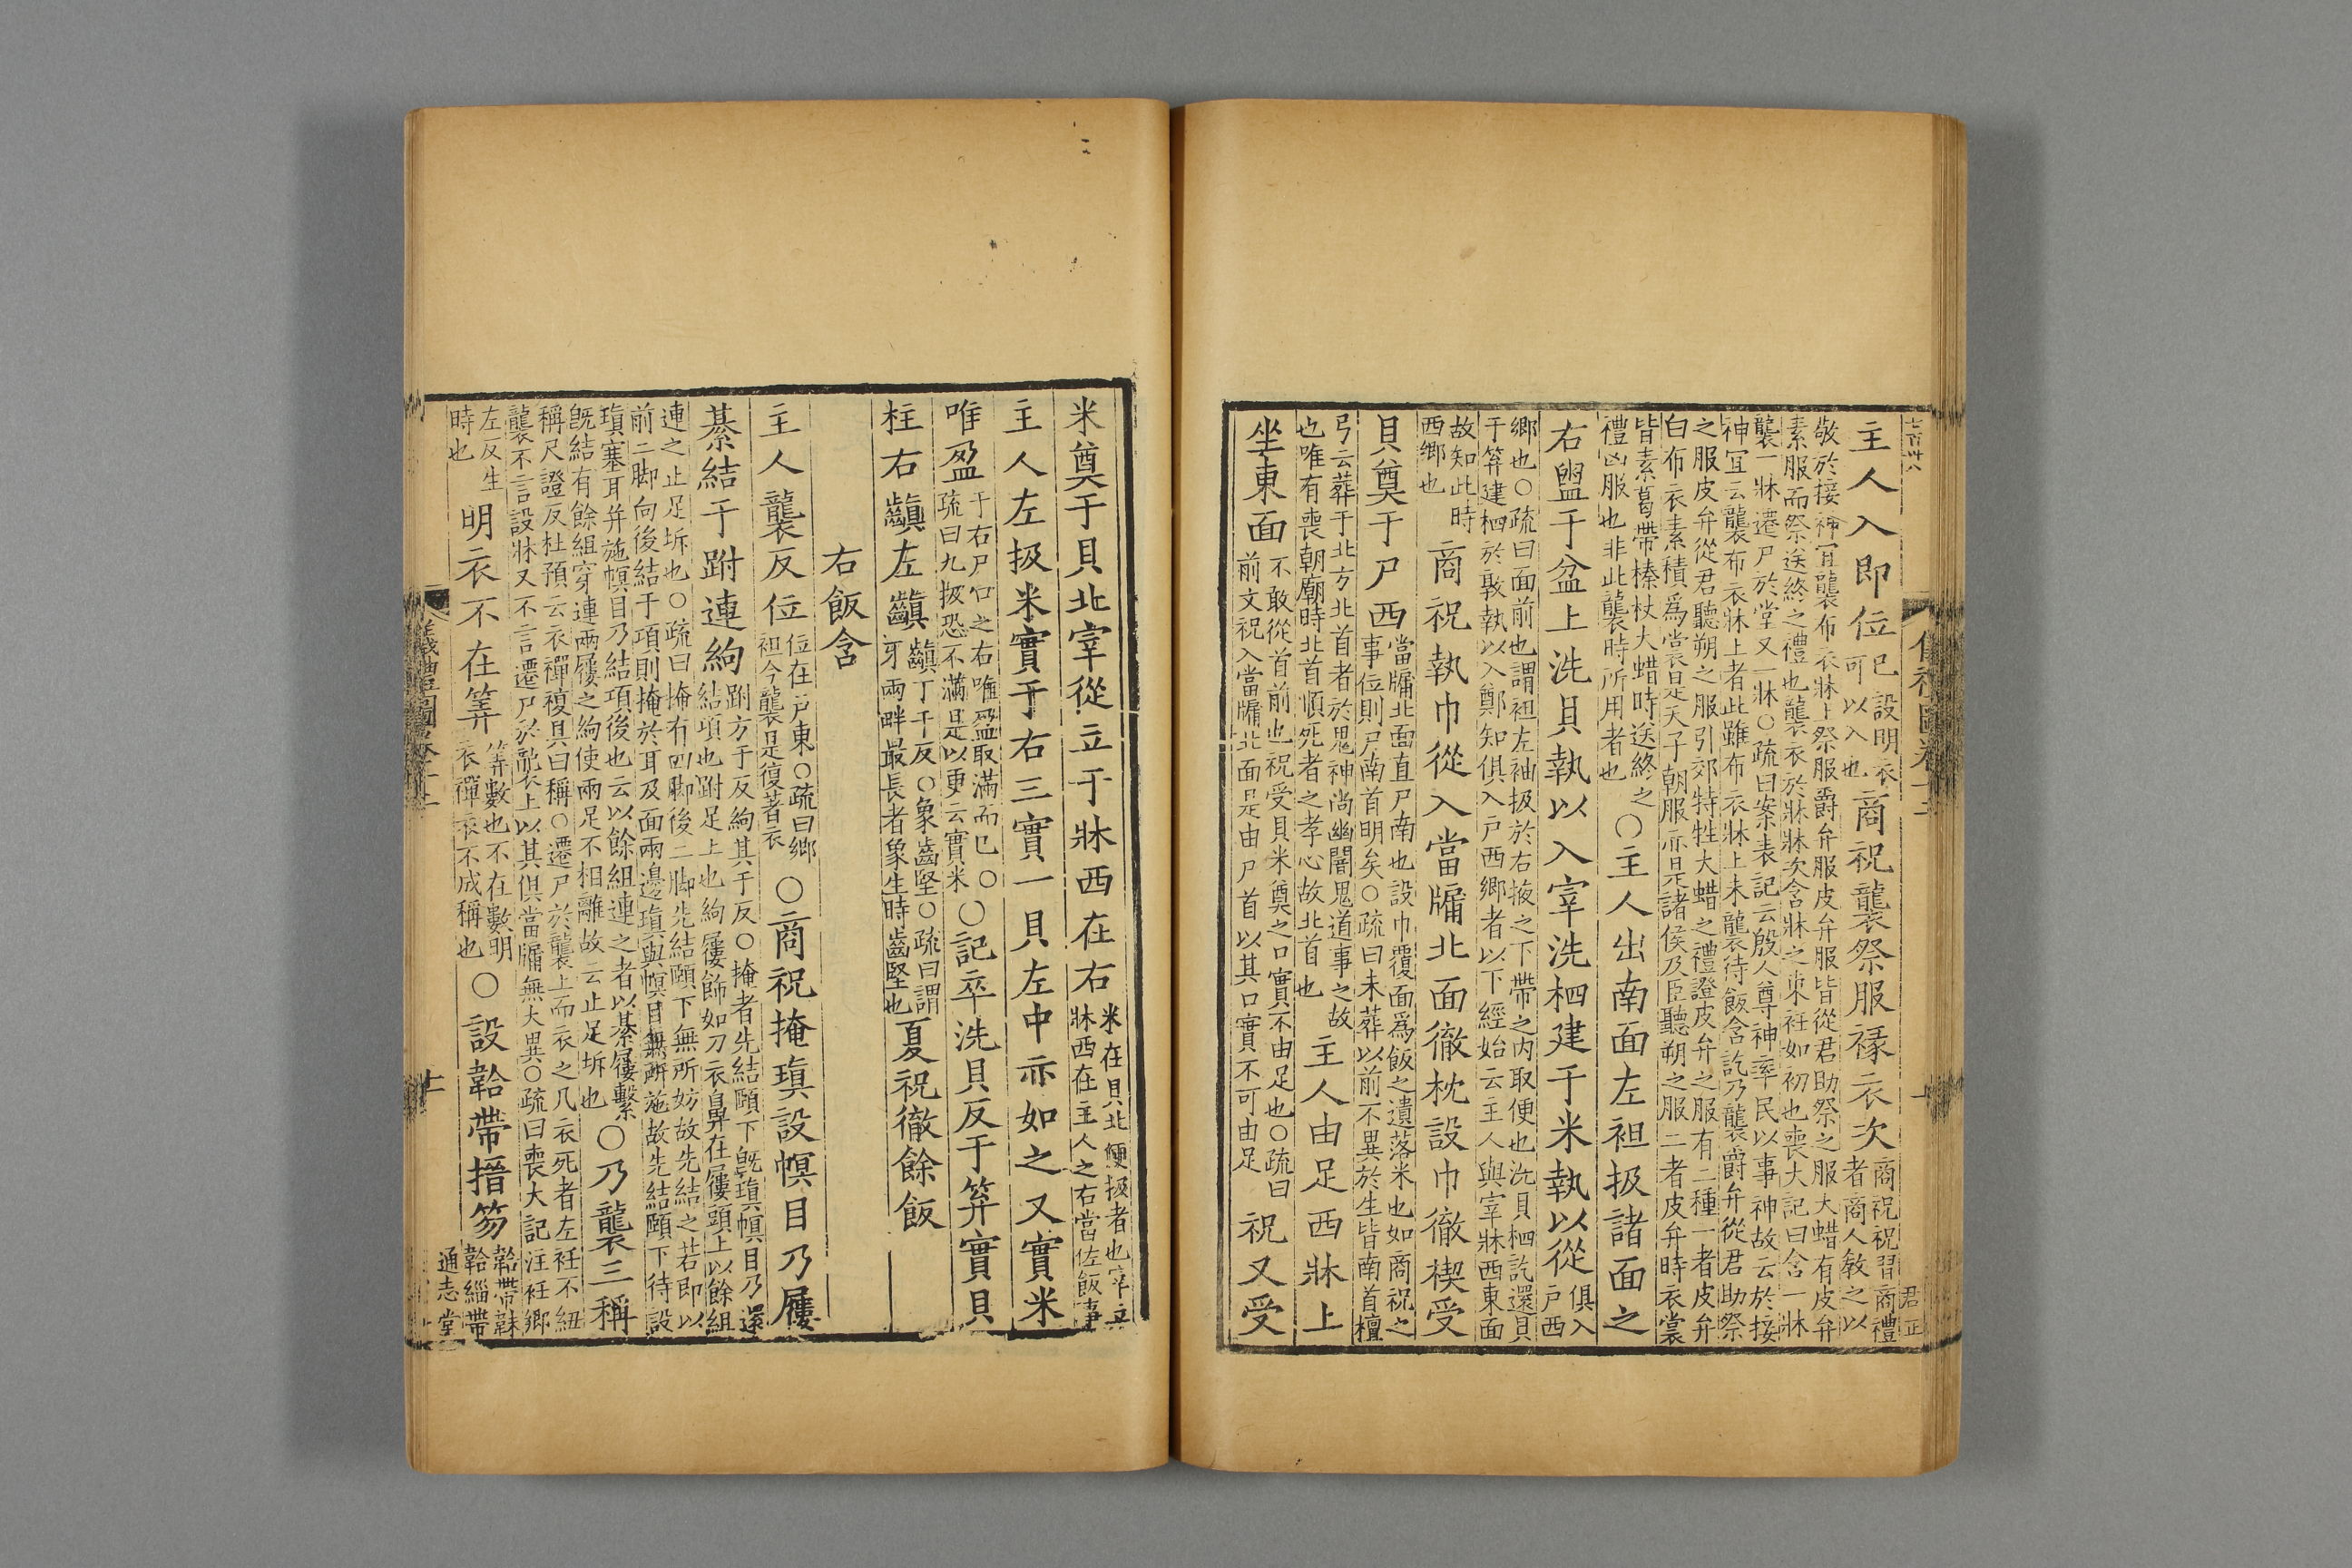 主人入即位已設明衣可以入也商祝襲祭服褖衣次商祝祝習商禮者商人教之以
敬於接神宜襲布衣牀上祭服爵弁服皮弁服皆從君助祭之服大蜡有皮弁
素服而祭送終之禮也襲衣於牀牀次含牀之東衽如初也喪大記曰含一牀
襲一牀遷尸於堂又一牀○疏曰案表記云殷人尊神率民以事神故云於接
神宜云襲布衣牀上者此雖布衣牀上未襲待飯含訖乃襲爵弁從君助祭
之服皮弁從君聽朔之服引郊特牲大蜡之禮證皮弁之服有二種一者皮弁
白布衣素積為裳是天子朝服亦是諸侯及臣聽朔之服二者皮弁時衣裳
皆素葛帶榛杖大蜡時送終之
禮凶服也非此襲時所用者也○主人出南面左袒扱諸面之
右盥于盆上洗貝執以入宰洗柶建于米執以從俱入戶西
鄉也○疏曰面前也謂袒左袖扱於右掖之下帶之内取便也洗貝柶訖還貝
于笲建柶於敦執以入鄭知俱入戶西鄉者以下經始云主人與宰牀西東面
故知此時西鄉也商祝執巾從入當牖北面徹枕設巾徹楔受
貝奠于尸西當牖北面直尸南也設巾覆面為飯之遺落米也如商祝之
事位則尸南首明矣○疏曰未葬以前不異於生皆南首檀
弓云葬于北方北首者於鬼神尚幽闇鬼道事之故
也唯有喪朝廟時北首順死者之孝心故北首也主人由足西牀上
坐東面不敢從首前也祝受貝米奠之口實不由足也○疏曰
前文祝入當牖北面是由尸首以其口實不可由足祝又受
米奠于貝北宰從立于牀西在右米在貝北便扱者也宰立
牀西在主人之右當佐飯事
主人左扱米實于右三實一貝左中亦如之又實米
唯盈于右尸口之右唯盈取滿而已○
疏曰九扱恐不滿是以更云實米○記卒洗貝反于笲實貝
柱右齻左齻齻丁千反○象齒堅○疏曰謂
牙兩畔最長者象生時齒堅也夏祝徹餘飯
右飯含
主人襲反位位在尸東○疏曰鄉
袒今襲是復著衣○商祝掩瑱設幎目乃屨
綦結于跗連絇跗方于反絇其于反○掩者先結頤下既瑱幎目乃還
結項也跗足上也絇屨飾如刀衣鼻在屨頭上以餘組
連之止足坼也○疏曰掩有四脚後二脚先結頤下無所妨故先結之若即以
前二脚向後結于項則掩於耳及面兩邊瑱與幎目無所施故先結頤下待設
瑱塞耳并施幎目乃結項後也云以餘組連之者以綦屨繫
既結有餘組穿連兩屨之絇使兩足不相離故云止足坼也○乃襲三稱
稱尺證反杜預云衣襌複具曰稱○遷尸於襲上而衣之凡衣死者左衽不紐
襲不言設牀又不言遷尸於襲上以其俱當牖無大異○疏曰喪大記注衽鄉
左反生時也明衣不在筭筭數也不在數明
衣襌衣不成稱也○設韐帶搢笏韐帶韎
韐緇帶
通志堂
君正